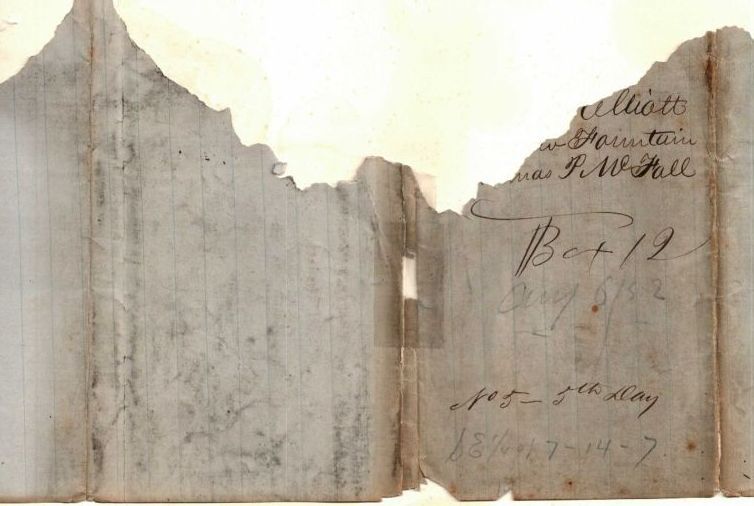 Elliott
w Fountain
mas P. McFall
Box 12
Aug 5/52
No 5 - 5th Day
7-14-7